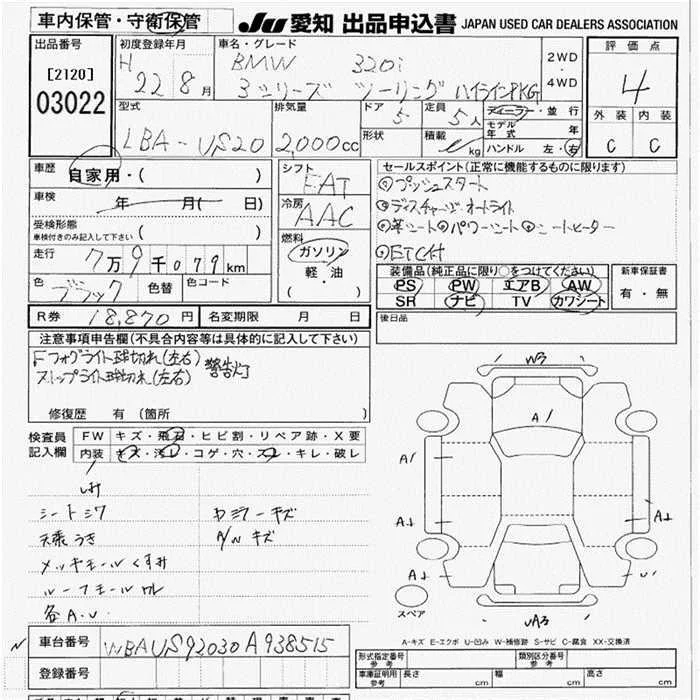 車内保管・守衛保管
JU 愛知 出品申込書 JAPAN USED CAR DEALERS ASSOCIATION
出品番号
[2120]
03022
初度登録年月
H 22 8月
車名・グレード
BMW 320i
3シリーズ ツーリング ハイラインPKG
2WD
・
4WD
評価点
4
外装 内装
C C
型式
LBA-US20
排気量
2,000cc
ドア
5
形状
定員
5人
積載
kg
ディーラー・並行
モデル年式 年
ハンドル 左・右
車歴
自家用・( )
車検
年 月( 日)
受検形態
車検付きのみ記入して下さい ( )
走行
7万9千079km
色
ブラック
色替
色コード
シフト
FAT
冷房
AAC
燃料
ガソリン
軽・油
( )
セールスポイント(正常に機能するものに限ります)
◎プッシュスタート
◎ディスチャージ・オートライト
◎革シート◎パワーシート◎シートヒーター
◎ETC付
装備品(純正品に限り○をつけてください)
PS PW エアB AW
SR ナビ TV カワシート
新車保証書
有・無
R券 18,870円
名変期限 月 日
後日品
注意事項申告欄(不具合内容等は具体的に記入して下さい)
Fフォグライト球切れ(左右)
ストップライト球切れ(左右) 警告灯
修復歴 有 (箇所 )
検査員記入欄
FW キズ・飛石・ヒビ割・リペア跡・X要
内装 キズ・汚レ・コゲ・穴・スレ・キレ・破レ
シートシワ
天張うき
メッキモールくすみ
ルーフモール
各A.U.
カミラーキズ
A/W キズ
W3
A1
A1
A2
A2
A2
U1
スペア
UA3
A-キズ E-エクボ U-凹み W-補修跡 S-サビ C-腐食 XX-交換済
車台番号 WBAUS92030A938515
登録番号
形式指定番号
参考
類別区分番号
参考
車庫証明用
参考
長さ cm
幅 cm
高さ cm